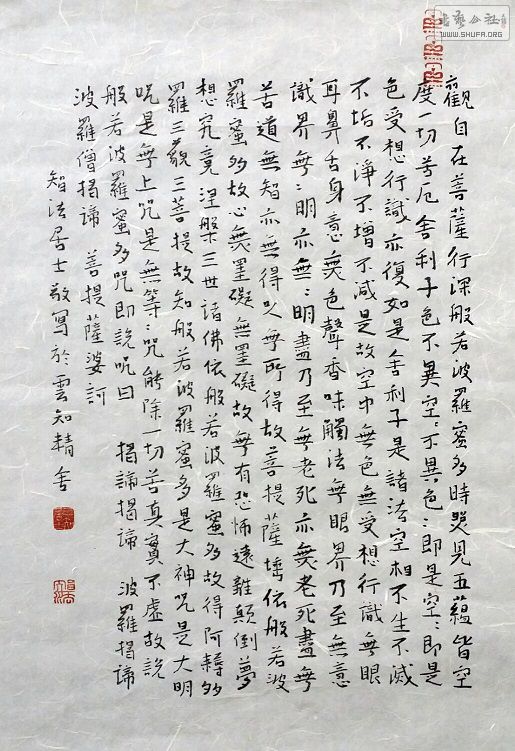 觀自在菩薩行深般若波羅蜜多時照見五蘊皆空
度一切苦厄舍利子色不異空:不異色:即是空:即是
色受想行識亦復如是舍利子是諸法空相不生不滅
不垢不淨不增不减是故空中無色無受想行識無眼
耳鼻舌身意无色聲香味觸法無眼界乃至無意
識界無:明亦無:明盡乃至無老死亦无老死盡無
苦道無智亦無得以無所得故菩提薩埵依般若波
羅蜜多故心无罣礙無罣礙故無有恐怖遠離顛倒夢
想究竟涅槃三世諸佛依般若波羅蜜多故得阿耨多
羅三藐三菩提故知般若波羅蜜多是大神咒是大明
咒是無上咒是無等:咒能除一切苦真實不虛故説
般若波羅蜜多咒即説咒曰 揭諦揭諦 波羅揭諦
波羅僧揭諦 菩提薩婆訶
智法居士敬寫於雲知精舍
WWW.SHUFA.ORG